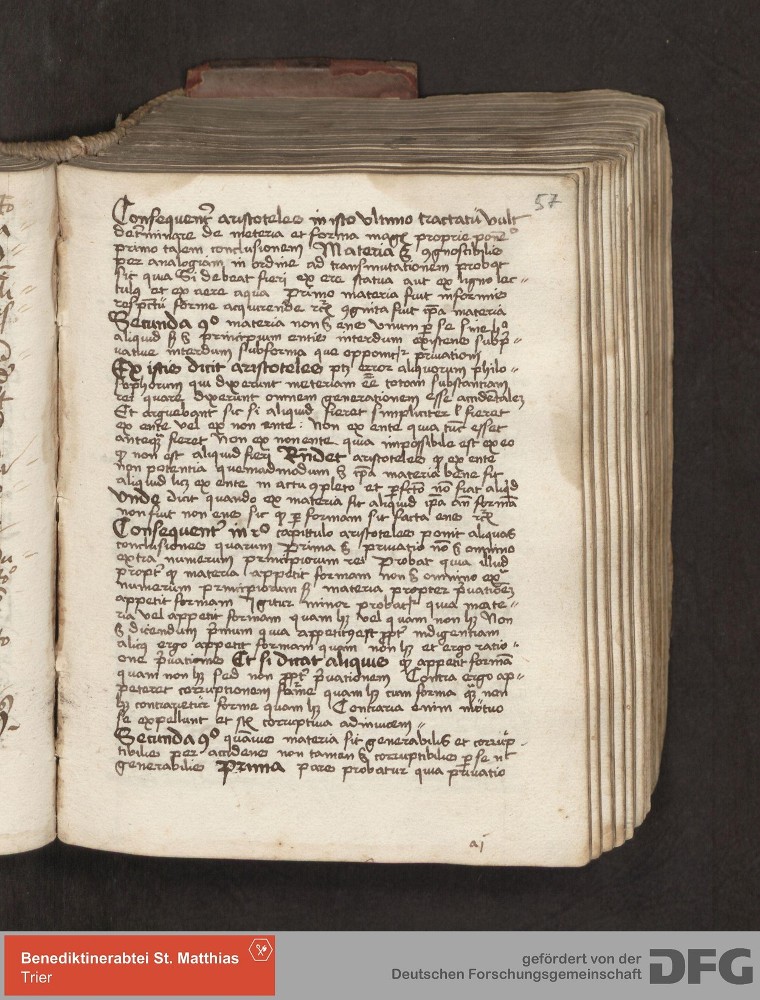 57
Consequent̃ aristoteles in isto ultimo tractatu vult
det̃minare de materia et forma magis proprie ponẽ
primo talem conclusionem Materia ẽ ꝯgnoscibilis
per analogiam in ordine ad transmutationem probat
sic quia Si debeat fieri ex ere statua aut ex ligno lec-
tulus et ex aere aqua primo materia fuit informis
respectu forme acquirende ꝛcꝫ ꝯgnita fuit ip̃a materia
Secunda ꝯᵒ materia non ẽ ens vnum ꝑ se sine
aliquid ẽ principium entis interdum existens subp̃-
uatue interdum subforma que opponitur priuationi
Ex istis dicit aristoteles ptꝫ error aliquorum philo-
sophorum qui dixerunt materiam eẽ totam substantiam
rei quare dixerunt omnem generationem esse accidentalẽ
Et arguebant sic si aliquid fieret simpliciter l fieret
ex ente vel ex non ente : Non ex ente quia tũc esset
anteqꝫ fieret Non ex nonente quia impossibile est ex eo
qͥ non est aliquid fieri Rñdet aristoteles qͥ ex ente
non potentia quemadmodum ẽ ip̃a materia bene fit
aliquid licꝫ ex ente in actu ꝯpleto et ꝑfcto nõ fiat aliqͥd
Vnde dicit quando ex materia fit aliquid ip̃a añ formã
non fuit non ens sic qͥ ꝑ formam sit facta ens ꝛcꝫ
Consequent̃ in 2ᵒ capitulo aristoteles ponit aliquas
conclusiones quarum Prima ẽ priuatio nõ ẽ omnino
extra numerum principiorum rei Probat quia illud
propt̃ qͥ materia appetit formam non ẽ omnino exᵃ
numerum principiorum materia propter p̃uationẽ
appetit formam igitur minor probat̃ quia mate-
ria vel appetit formam quam hꝫ vel quam non hꝫ Non
ẽ dicendum p̃mum quia appetitꝯ est ꝓpt̃ indigentiam
alicꝯ ergo appetit formam quam non hꝫ et ergo ratio-
one p̃uationis Et si dicat aliquis qͥ appetit formã
quam non hꝫ sed non ꝓpt̃ p̃uationem Contra ergo ap-
peteret corruptionem forme quam hꝫ cum forma qᵃ non
hꝫ contrarietur forme quam hꝫ Contraria enim mutuo
se expellunt et sũt corruptiua adinuicem
Secunda ꝯᵒ quãuis materia sit generabilis et corrup-
tibilis per accidens non tamen ẽ corruptibilis ꝑ se nͨ
generabilis Prima pars probatur quia priuatio
Benediktinerabtei St. Matthias
Trier
gefördert von der
Deutschen Forschungsgemeinschaft
DFG